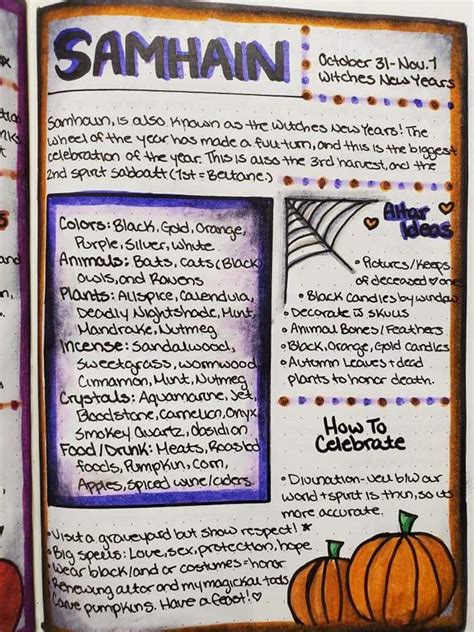 SAMHAIN
October 31-Nov. 1
Witches New Years
Samhaun, is also known as the witches New Years! The
wheel of the year has made a full turn, and this is the biggest
celebration of the year. This is also the 3rd harvest, and the
2nd spirit sabbatt (1st = Beltane.)
Colors: Black, Gold, Orange,
Purple, Silver, White
Animals: Bats, Cats (Black)
Owls, and Ravens
Plants: Allspice, Calendula,
Deadly Nightshade, Mint,
Mandrake, Nutmeg
Incense: Sandalwood,
Sweetgrass, wormwood
Cinnamon, Mint, Nutmeg
Crystals: Aquamarine, Jet,
Bloodstone, Carnelion, Onyx,
Smokey Quartz, Obsidion
Food/Drunk: Meats, Roasted
foods, Pumpkin, corn,
Apples, Spiced wine/ciders.
Altar
Ideas
• Pictures/Keeps.
of deceased ones
• Black candles by window
• Decorate w skulls
• Animal Bones/Feathers
• Black, Orange, Gold candles
• Autumn Leaves + dead
plants to honor death.
How To
Celebrate
• Divination-veil b/w our
world + spirit is thin, so its
more accurate.
• Visit a graveyard but show respect! *
• Big spells: Love, sex, protection, hope
• Wear black/and or costumes = honor
• Renewing altar and my magickal tools
• Carve pumpkins. Have a feast! ♡